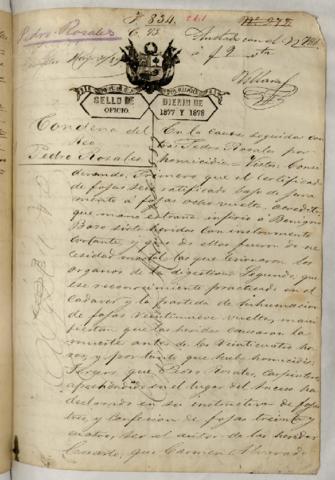 F. 834.
Pedro Rosales
C. 93.
SELLO DE
OFICIO.
BIENIO DE
1877 Y 1878
Condena del
Reo
Pedro Rosales
En la causa seguida con
tra Pedro Rosales por
homicidio = Vistos: Consi
derando, Primero que el certificado
de fojas seis ratificado bajo de jura
mento á fojas ocho vuelta, acredita
que mano estraña infirio á Benigno
siete heridas con instrumento
cortante, y que de ellas fueron de ne
cesidad mortal las que lesionaron los
organos de la digestion: Segundo, que
ese reconocimiento practicado en el
cadaver y la partida de inhumacion
de fojas veintinueve vuelta, mani
fiestan que las heridas causaron la
muerte antes de las veinticuatro ho
ras y por tanto que hubo homicidio.
Tercero que Pedro Rosales, carpintero,
aprehendido en el lugar del suceso ha
declarado en su instructiva de fojas
tres, y confesion de fojas treinta y
cuatro, ser el autor de las heridas
Cuarto, que Carmen Alvarado